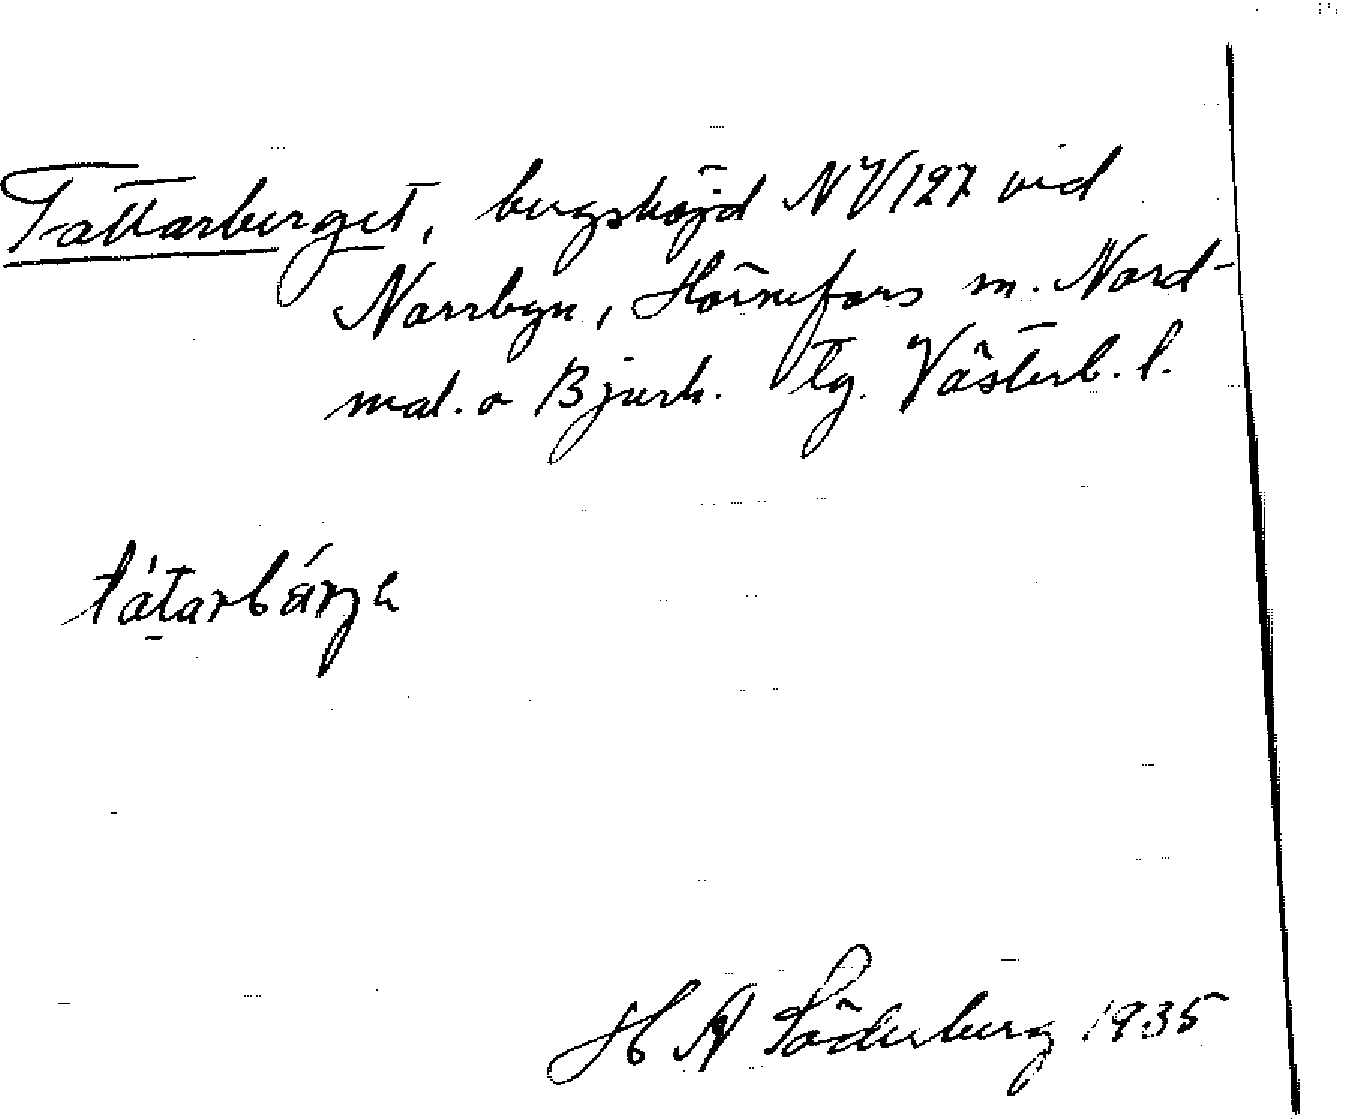 Tattarberget, bergshöjd NV127 vid
Norrbyn, Hörnefors sn. Nord-
mal. o Bjurh. tg. Västerb. l.
tátarbárjɛ
H A Söderberg 1935